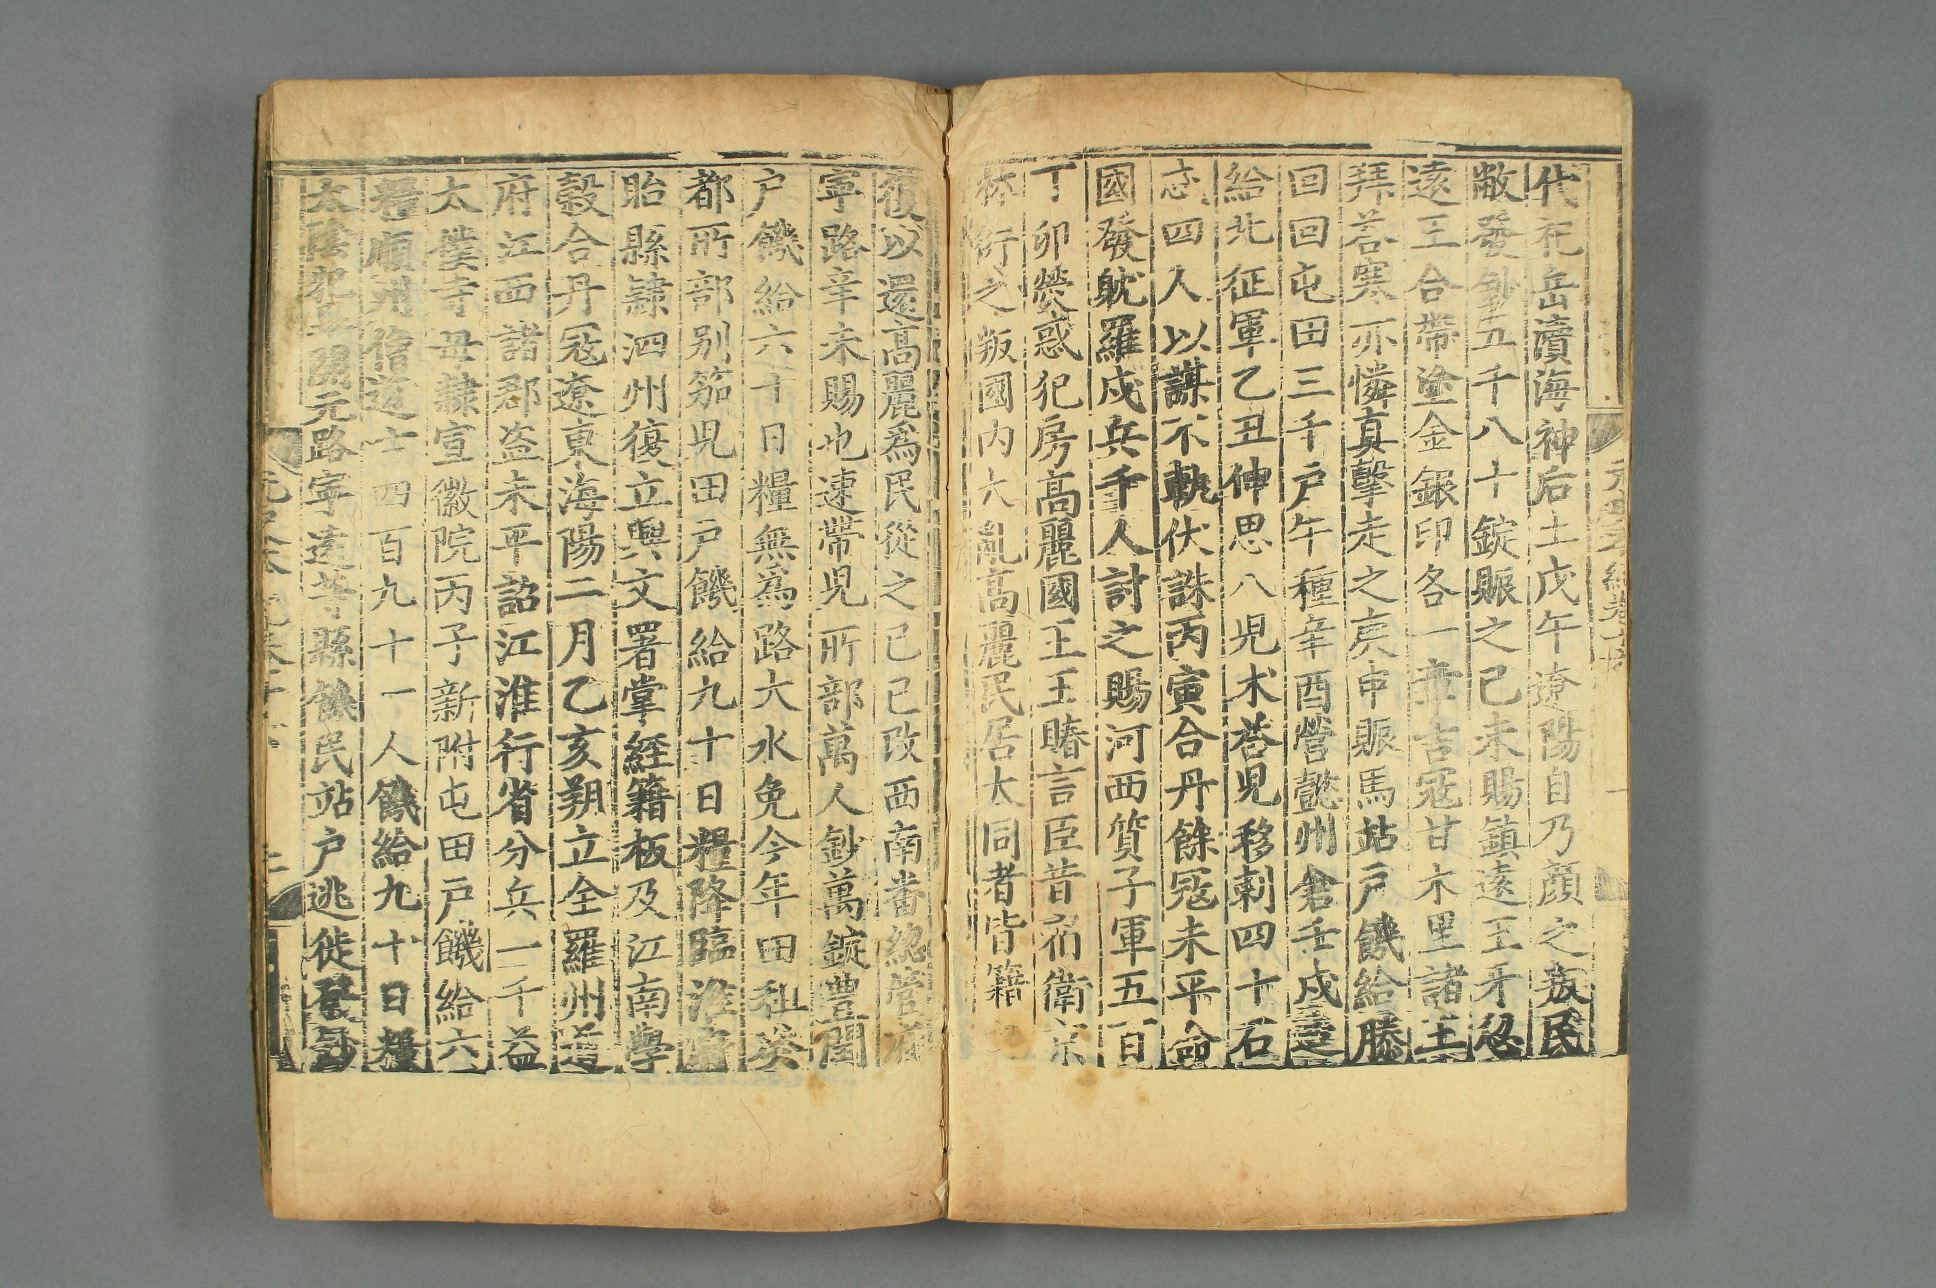 代祀岳瀆海神后土戊午遼陽自乃顔之叛民
敝發鈔五千八十錠賑之己未賜鎮遠王牙忽
遠王合帶塗金銀印各一章吉寇甘木里諸王
拜荅寒亦憐真擊走之庚申賑馬站戶饑給滕
回回屯田三千戶午種辛酉營懿州倉壬戌
給北征軍乙丑伸思八児朮荅児移剌四十石
忩四人以謀不軌伏誅丙寅合丹餘冦未平命
國發躭羅戍兵千人討之賜河西質子軍五百
丁卯熒惑犯房高麗國王王睶言臣昔宿衛京
林衍之叛國内大亂高麗民居大同者皆籍
復以還高麗爲民從之己巳改西南畨緫管府
寧路辛未賜也速帶児所部萬人鈔萬錠豊閏
户饑給六十日糧無爲路大水免今年田租癸
都所部别笳児田户饑給九十日糧降臨淮府
眙縣隷泗州復立興文署掌經籍板及江南學
穀合丹冦遼東海陽二月乙亥朔立全羅州道
府江西諸郡盗未平詔江淮行省分兵一千益
太僕寺毋隷宣徽院丙子新附屯田户饑給六
糧順州僧道士四百九十一人饑給九十日糧
太陰犯 開元路寧遠等縣饑民站户逃徙發鈔